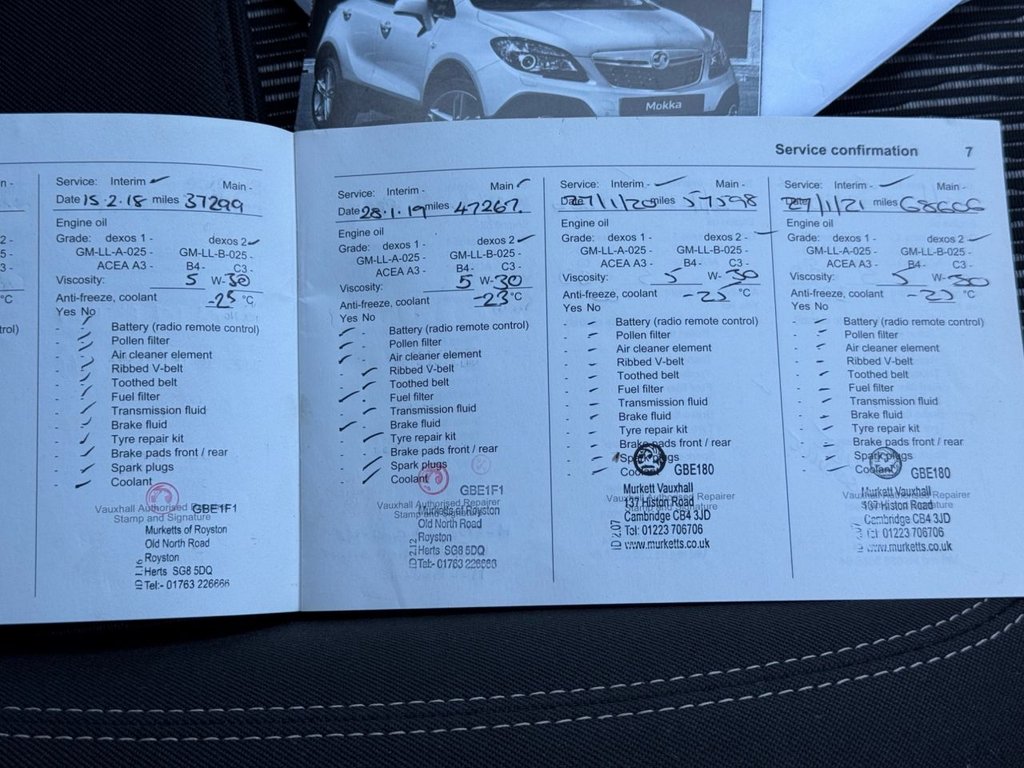 Mokka
Service confirmation 7
Service: Interim -
Main -
Date 15.2.18 miles 37299
Engine oil
Grade: dexos 1 -
dexos 2 -
GM-LL-A-025 -
GM-LL-B-025 -
ACEA A3 -
B4 -
C3 -
Viscosity: 5 W-30
Anti-freeze, coolant -25 °C
Yes No
Battery (radio remote control)
Pollen filter
Air cleaner element
Ribbed V-belt
Toothed belt
Fuel filter
Transmission fluid
Brake fluid
Tyre repair kit
Brake pads front / rear
Spark plugs
Coolant
GBE1F1
Vauxhall Authorised Repairer
Stamp and Signature
Murketts of Royston
Old North Road
Royston
Herts SG8 5DQ
Tel:- 01763 226666
Service: Interim -
Main -
Date 28.1.19 miles 47267.
Engine oil
Grade: dexos 1 -
dexos 2 -
GM-LL-A-025 -
GM-LL-B-025 -
ACEA A3 -
B4 -
C3 -
Viscosity: 5 W-30
Anti-freeze, coolant -23 °C
Yes No
Battery (radio remote control)
Pollen filter
Air cleaner element
Ribbed V-belt
Toothed belt
Fuel filter
Transmission fluid
Brake fluid
Tyre repair kit
Brake pads front / rear
Spark plugs
Coolant
GBE1F1
Vauxhall Authorised Repairer
Stamp and Signature
Murketts of Royston
Old North Road
Royston
Herts SG8 5DQ
Tel:- 01763 226666
Service: Interim -
Main -
Date 27/1/20 miles 57598
Engine oil
Grade: dexos 1 -
dexos 2 -
GM-LL-A-025 -
GM-LL-B-025 -
ACEA A3 -
B4 -
C3 -
Viscosity: 5 W-30
Anti-freeze, coolant -25 °C
Yes No
Battery (radio remote control)
Pollen filter
Air cleaner element
Ribbed V-belt
Toothed belt
Fuel filter
Transmission fluid
Brake fluid
Tyre repair kit
Brake pads front / rear
Spark plugs
Coolant
GBE180
Vauxhall Authorised Repairer
Murkett Vauxhall
137 Histon Road
Cambridge CB4 3JD
Tel: 01223 706706
www.murketts.co.uk
Service: Interim -
Main -
Date miles 68606
Engine oil
Grade: dexos 1 -
dexos 2 -
GM-LL-A-025 -
GM-LL-B-025 -
ACEA A3 -
B4 -
C3 -
Viscosity: 5 W-30
Anti-freeze, coolant -25 °C
Yes No
Battery (radio remote control)
Pollen filter
Air cleaner element
Ribbed V-belt
Toothed belt
Fuel filter
Transmission fluid
Brake fluid
Tyre repair kit
Brake pads front / rear
Spark plugs
Coolant
GBE180
Vauxhall Authorised Repairer
Murkett Vauxhall
137 Histon Road
Cambridge CB4 3JD
Tel: 01223 706706
www.murketts.co.uk